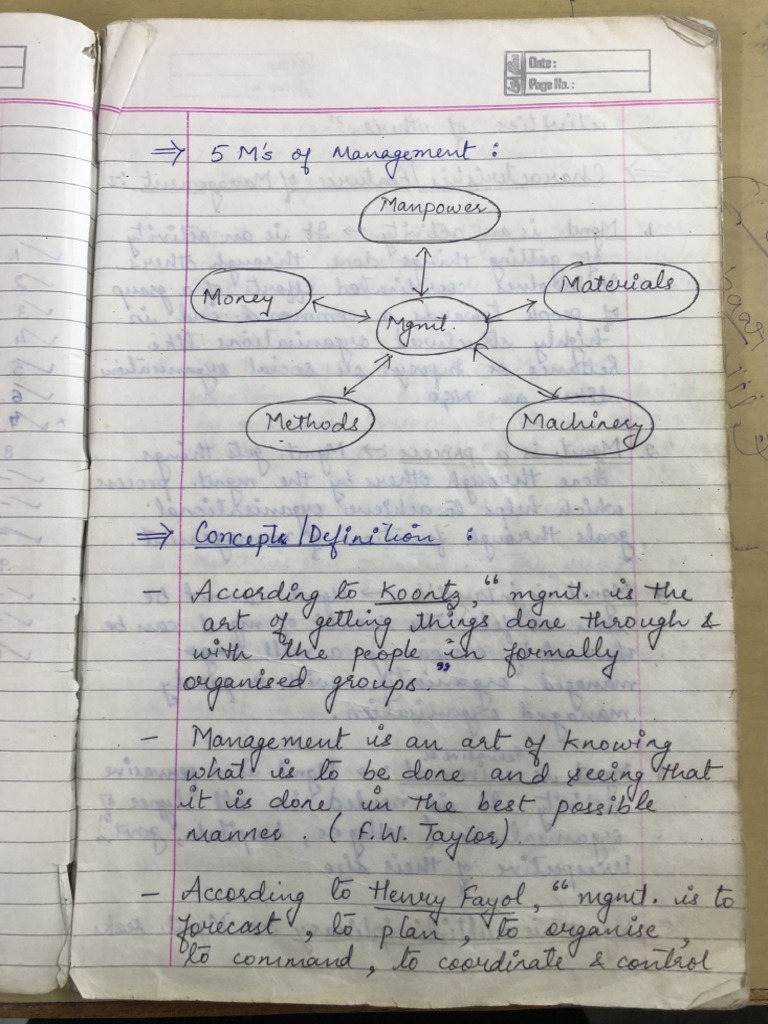 Date :
Page No. :
⇒ 5 M's of Management :
Manpower
Money
Materials
Mgmt.
Methods
Machinery
⇒ Concepts / Definition :
- According to Koontz, “ mgmt. is the
art of getting things done through &
with the people in formally
organised groups.”
- Management is an art of knowing
what is to be done and seeing that
it is done in the best possible
manner. ( F.W. Taylor)
- According to Henry Fayol, “ mgmt. is to
forecast , to plan , to organise ,
to command , to coordinate & control